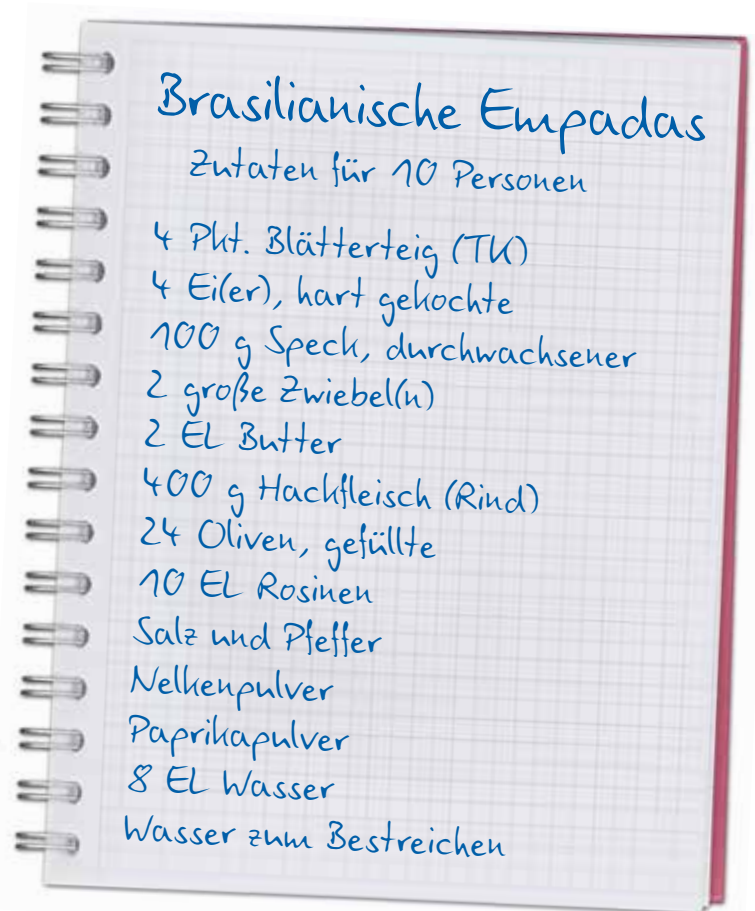 Brasilianische Empadas
Zutaten für 10 Personen
4 Pkt. Blätterteig (TK)
4 Ei(er), hart gekochte
100 g Speck, durchwachsener
2 große Zwiebel(n)
2 EL Butter
400 g Hackfleisch (Rind)
24 Oliven, gefüllte
10 EL Rosinen
Salz und Pfeffer
Nelkenpulver
Paprikapulver
8 EL Wasser
Wasser zum Bestreichen